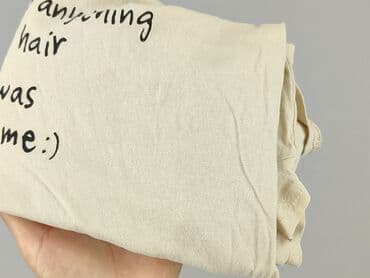 anything
hair
was
me:)